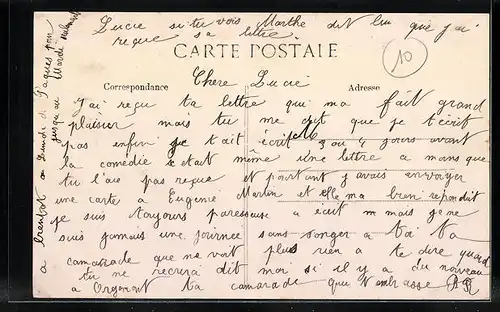 Lucie si tu vois Marthe dit lui que j'ai
reçue sa lettre
CARTE POSTALE
10
Correspondance
Adresse
Chere Lucie
J'ai reçu ta lettre qui ma fait grand
plaisir mais tu me dit que je t'écrit
pas enfin je t'ait écrit 3 ou 4 jours avant
la comédie s'etait même une lettre a mans que
tu l'aie pas reçue et pourtant j'avais envoyer
une carte a Eugenie Martin et elle ma bien repondut
je suis toujours paresseuse a écrit mmais je ne
suis jamais une journée sans songer a toi ta
camarade que ne voit plus rien a te dire quand
tu me recrira dit moi si il y a du nouveau
a Orgerent ta camarade qui t'embrasse
a bientot au Lundi de Paques pour
jusqu'au Mardi